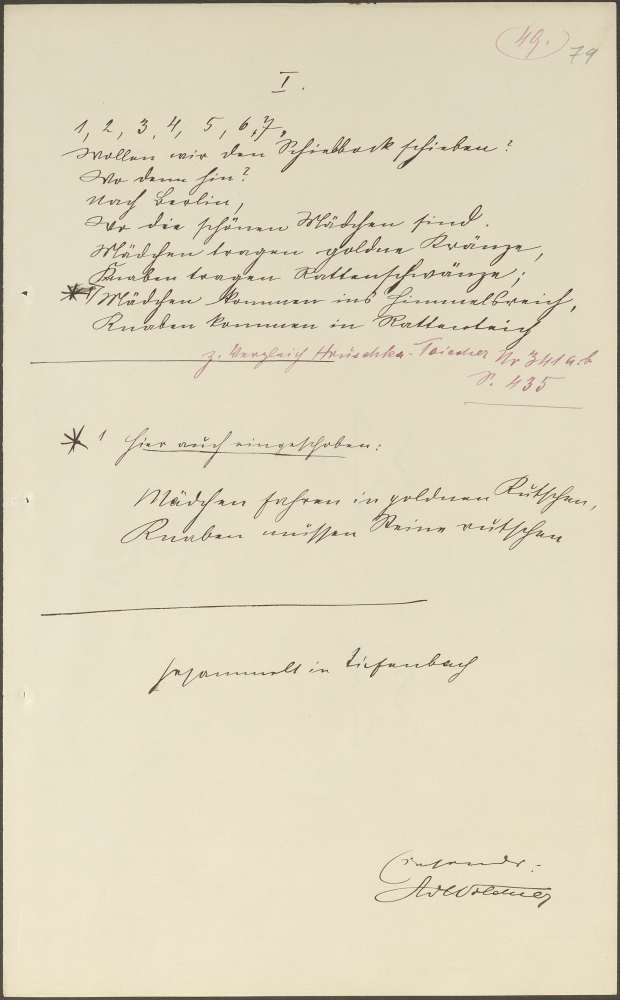 49.
79
I.
1, 2, 3, 4, 5, 6, 7,
Wollen wir den Schiebbock schieben?
Wo denn hin?
Nach Berlin,
Wo die schönen Mädchen sind.
Mädchen tragen goldne Kränze,
Knaben tragen Rattenschwänze;
*1 Mädchen kommen ins Himmelreich,
Knaben kommen in Rattenteich
z. Vergleich Hruschka-Toischer Nr 341 a.b
S. 435
*1 hier auch eingeschoben:
Mädchen fahren in goldnen Kutschen,
Knaben müssen Steine rutschen
Gesammelt in Tiefenbach
Einsender: